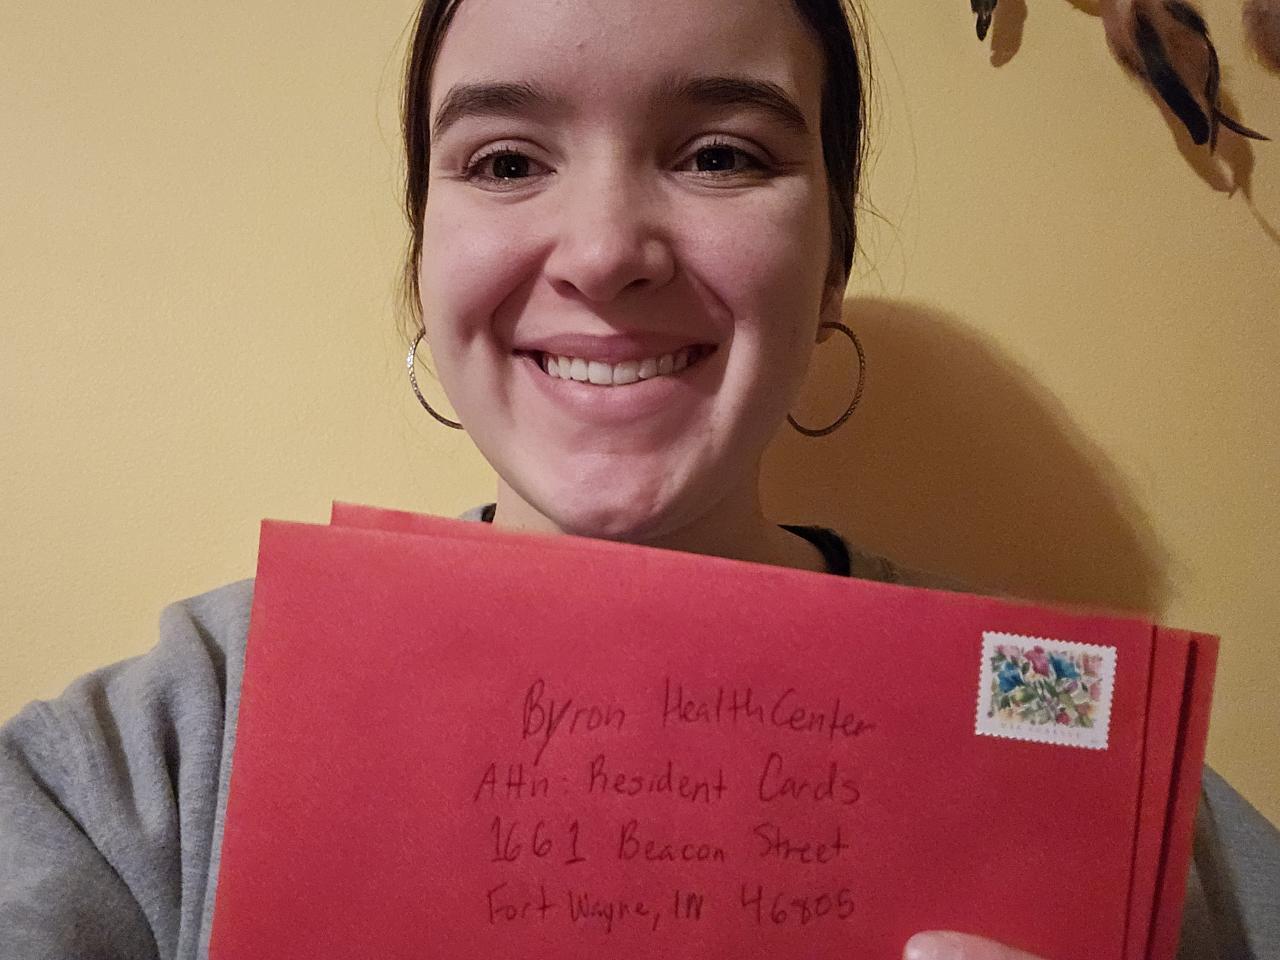 Byron Health Center
Attn: Resident Cards
1661 Beacon Street
Fort Wayne, IN 46805